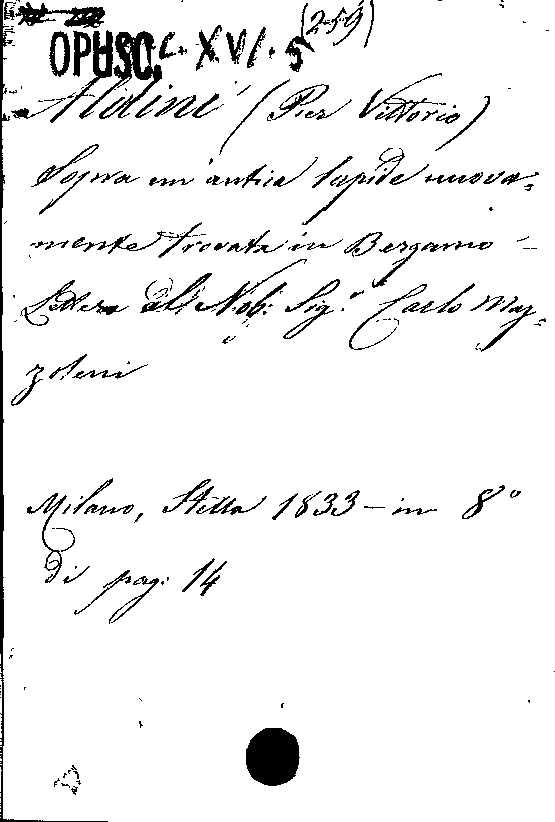 (259)
OPUSC. C. XVI. 5
Aldini (Pier Vittorio)
Sopra un'antica lapide nuova=
mente trovata in Bergamo -
Lettera al Nob: Sig.r Carlo Maz=
zoleni
Milano, Stella 1833 - in 8°
di pag: 14